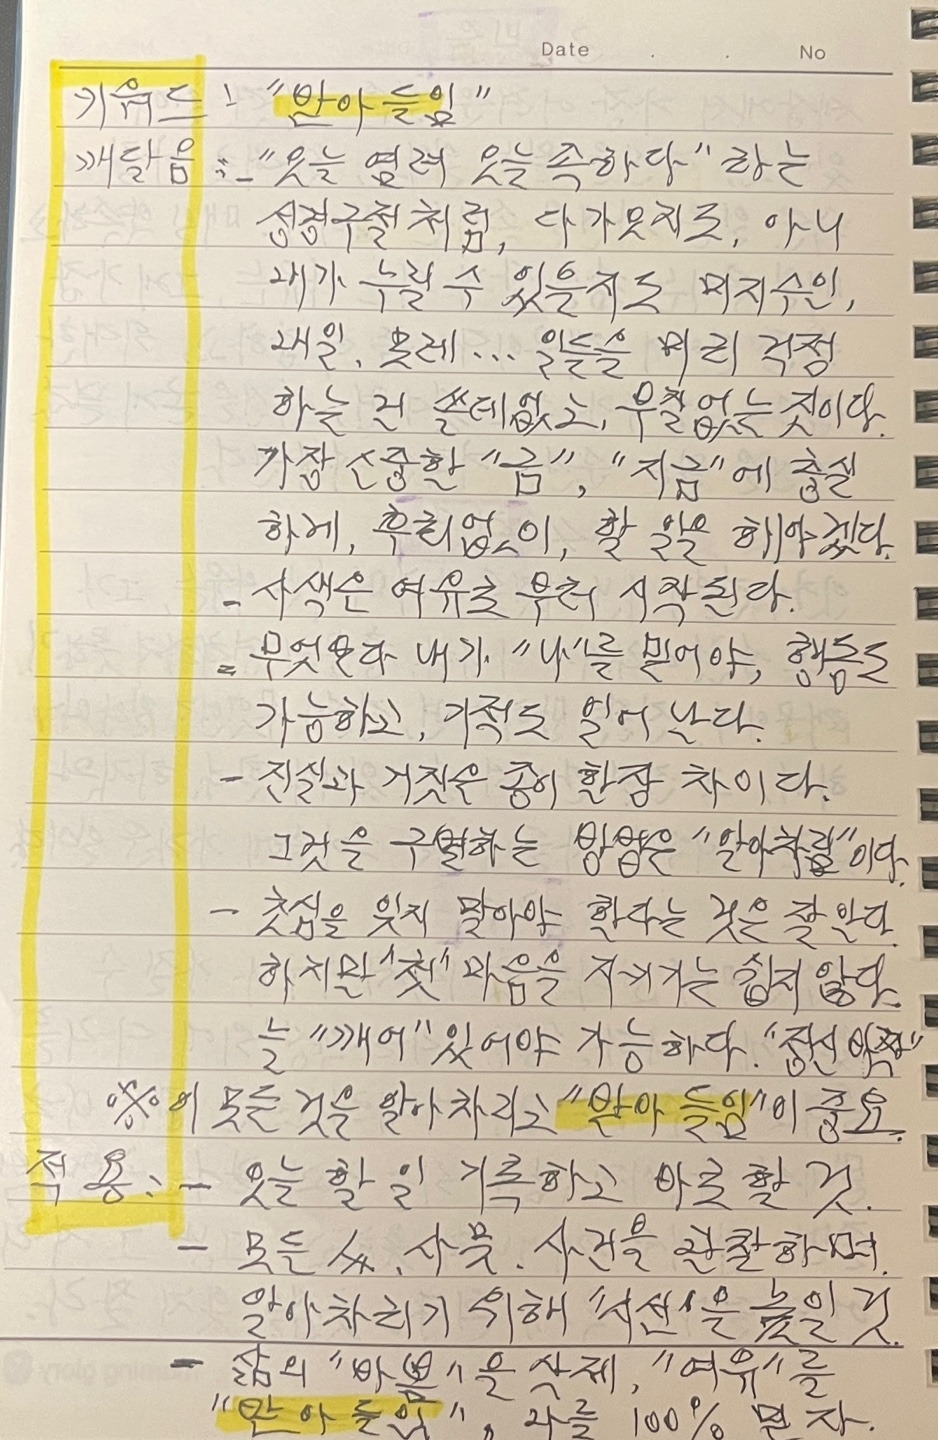 Date . . No
키워드 : "받아들임"
깨달음 :- "오늘 염려 오늘 족하다" 라는
성경구절처럼, 다가올지도, 아니
내가 누릴 수 있을지도 미지수인,
내일, 모레... 일들을 미리 걱정
하는 건 쓸데없고, 부질없는 것이다.
가장 소중한 "금", "지금"에 충실
하게, 후회없이, 할 일을 해야겠다.
- 사색은 여유로부터 시작된다.
- 무엇보다 내가 "나"를 믿어야, 행동도
가능하고, 기적도 일어난다.
- 진실과 거짓은 종이 한장 차이다.
그것을 구별하는 방법은 "알아차림"이다.
- 첫심을 잊지 말아야 한다는 것은 잘 안다.
하지만 "첫" 마음을 지키기는 쉽지 않다.
늘 "깨어" 있어야 가능하다. "정신 바짝"
※ 이 모든 것을 알아차리고 "받아들임"이 중요.
적용 : - 오늘 할 일 기록하고 바로 할 것.
- 모든 人, 사물, 사건을 관찰하며,
알아차리기 위해 "시선"을 높일 것.
- 삶의 "바쁨"을 삭제, "여유"를
"받아들임", 나를 100% 믿자.
morning glory